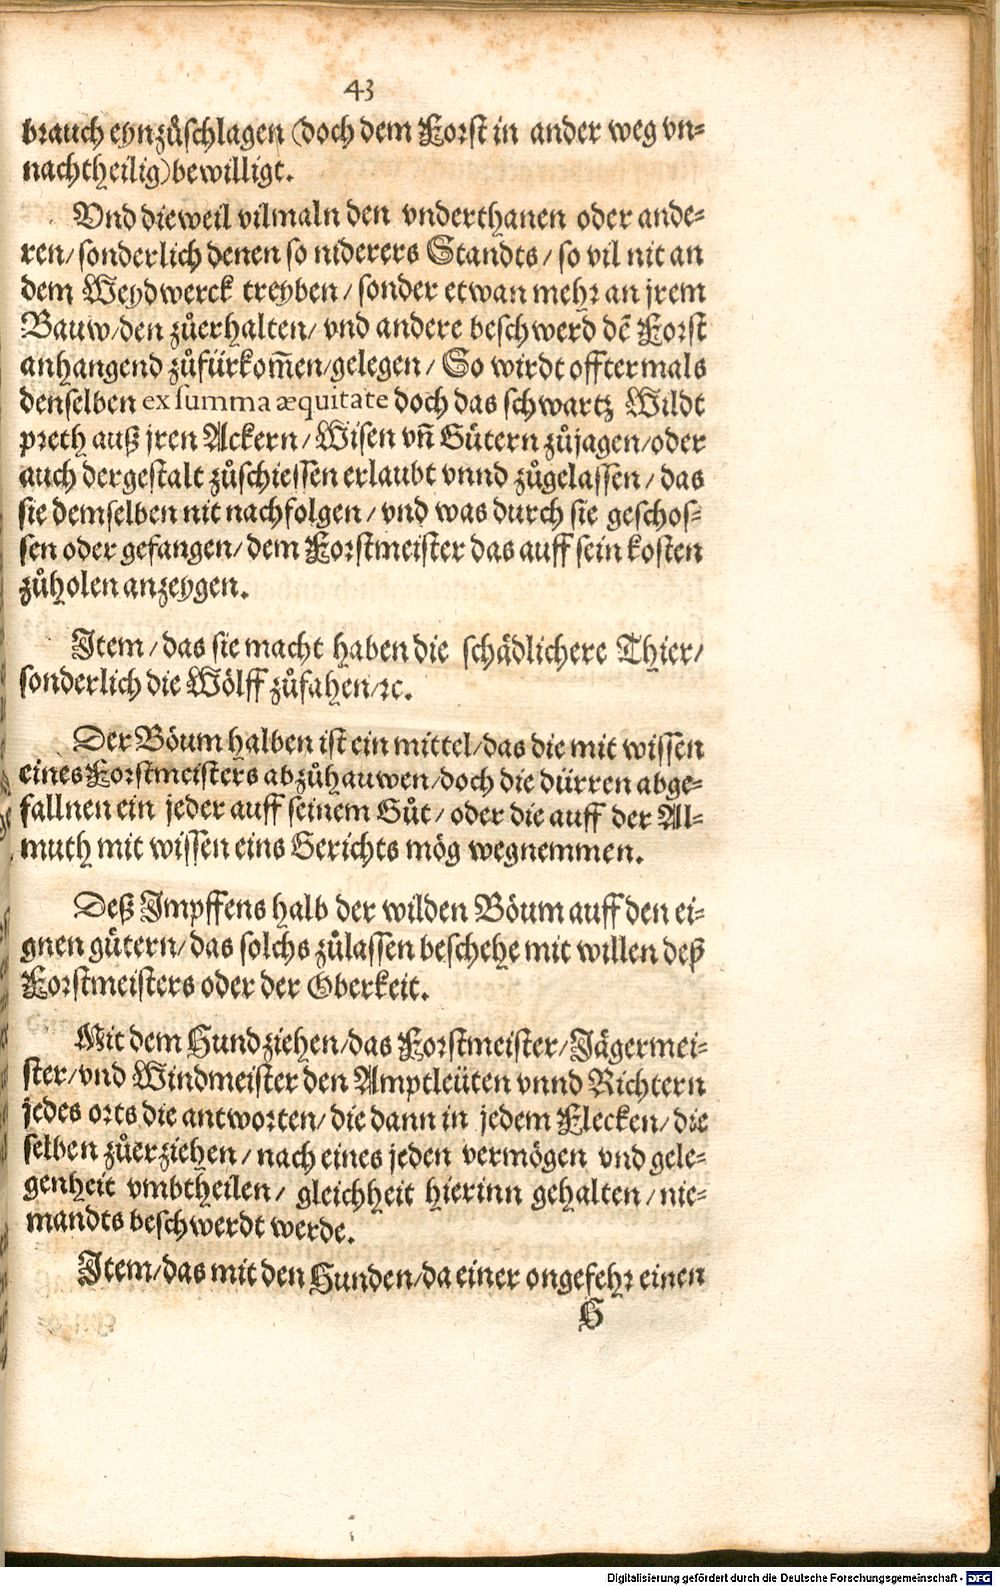 43
brauch eynzůschlagen (doch dem Forst in ander weg vn=
nachtheilig) bewilligt.
Vnd dieweil vilmaln den vnderthanen oder ande=
ren/ sonderlich denen so niderers Standts/ so vil nit an
dem Weydwerck treyben/ sonder etwan mehr an jrem
Bauw/ den zůerhalten/ vnd andere beschwerd dē Forst
anhangend zůfürkom̃en/ gelegen/ So wirdt offtermals
denselben ex summa æquitate doch das schwartz Wildt
preth auß jren Ackern/ Wisen vñ Gütern zůjagen/ oder
auch dergestalt zůschiessen erlaubt vnnd zůgelassen/ das
sie demselben nit nachfolgen/ vnd was durch sie geschos=
sen oder gefangen/ dem Forstmeister das auff sein kosten
zůholen anzeygen.
Item/ das sie macht haben die schädlichere Thier/
sonderlich die Wölff zůfahen/ ꝛc.
Der Böum halben ist ein mittel/ das die mit wissen
eines Forstmeisters abzůhauwen/ doch die dürren abge=
fallnen ein jeder auff seinem Gůt/ oder die auff der Al=
muth mit wissen eins Gerichts mög wegnemmen.
Deß Impffens halb der wilden Böum auff den ei=
gnen gütern/ das solchs zůlassen beschehe mit willen deß
Forstmeisters oder der Oberkeit.
Mit dem Hundziehen/ das Forstmeister/ Jägermei=
ster/ vnd Windmeister den Amptleüten vnnd Richtern
jedes orts die antworten/ die dann in jedem Flecken/ die
selben zůerziehen/ nach eines jeden vermögen vnd gele=
genheit vmbtheilen/ gleichheit hierinn gehalten/ nie=
mandts beschwerdt werde.
Item/ das mit den Hunden/ da einer ongefehr einen
H
Digitalisierung gefördert durch die Deutsche Forschungsgemeinschaft - DFG